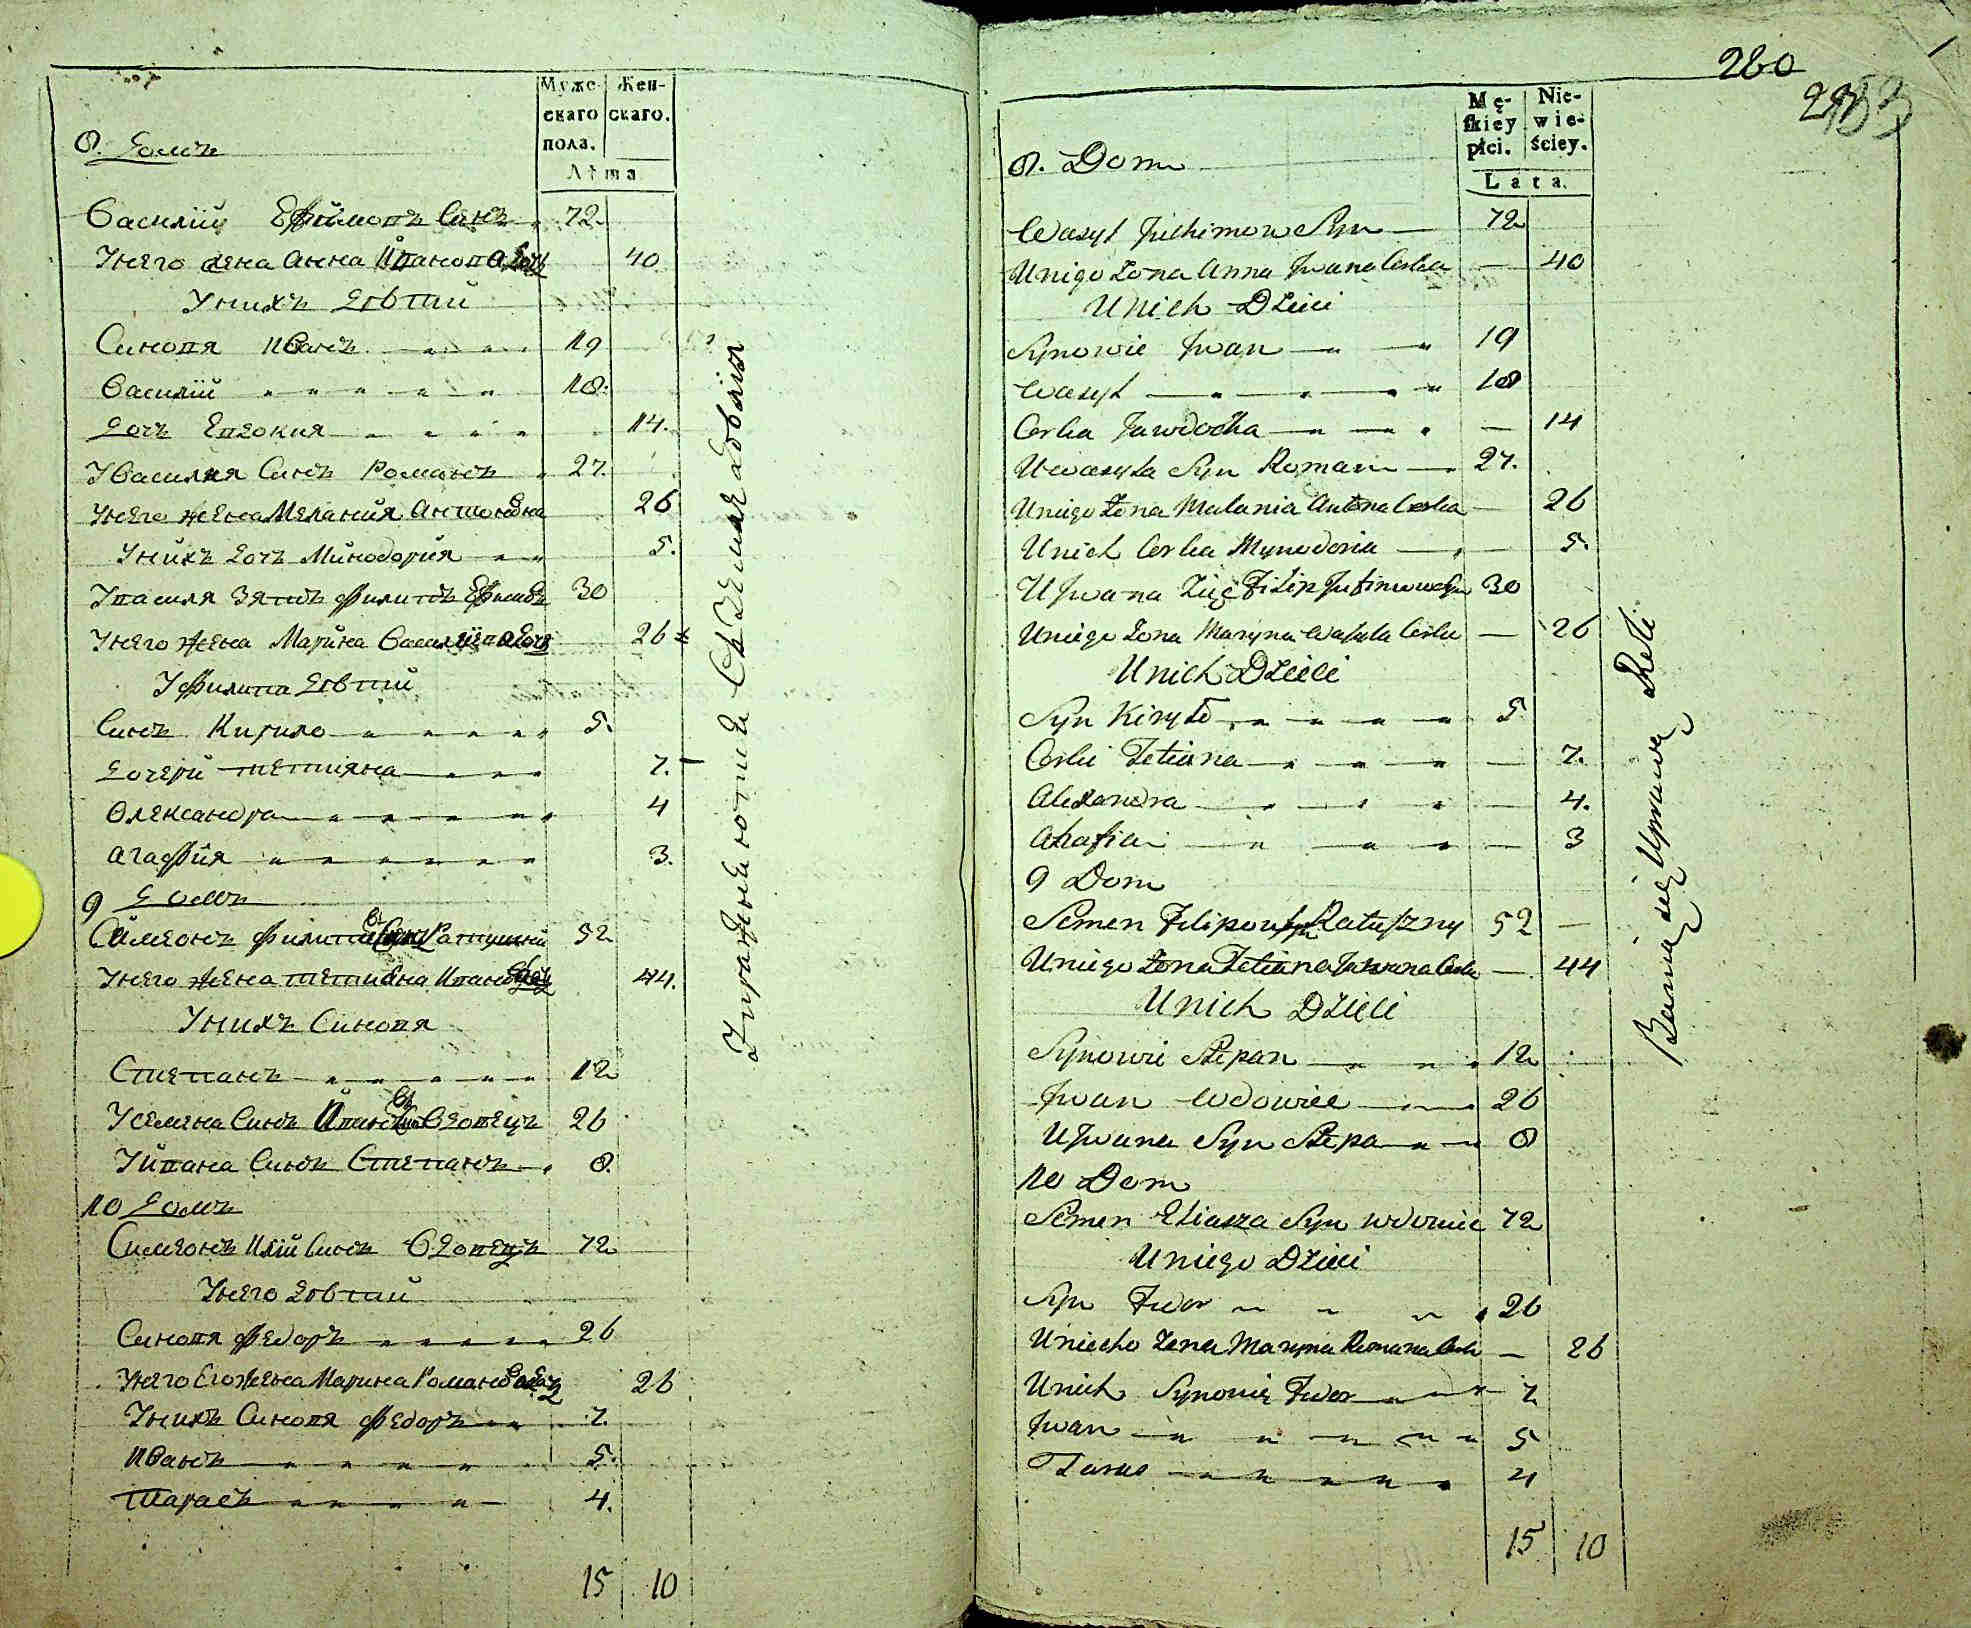 Муже-
скаго
пола.
Жен-
скаго.
Лѣта
8. Домъ
Василій Ефимовъ Синъ 72.
Унего жена Анна Иванова дочь 40
Унихъ дѣтии
Синовя Иванъ 19
Василій 18.
Дочъ Евдокия 14.
УВасиля Синъ Романъ 27.
Унего жена Мелания Антоновна 26
Унихъ дочъ Минодория 5.
Увасиля Зять Филипъ Ефимовъ 30
Унего жена Марина Василиева дочь 26
УФилипа дѣтий
Синъ Кирило 5.
Дочери Тетияна 7.
Олександра 4
Агафия 3.
9 Домъ
Симеонъ Филиповъ Синъ Ратушний 52
Унего жена Тетияна Иванова дочь 44.
Унихъ Синовя
Степанъ 12
УСемена Синъ Иванъ Вдовецъ 26
УИвана Синъ Степанъ 8.
10 Домъ
Симеонъ Илїи Синъ Вдовецъ 72
Унего дѣтий
Синовя Федоръ 26
Унего Его жена Марина Романова дочь 26
Унихъ Синовя Федоръ 7.
Иванъ 5.
Тарасъ 4.
15 10
Упражняются Въ Земледѣлия
260
Mę-
skiey
płci.
Nie-
wie-
ściey.
Lata.
8. Dom
Wasyl Juchimow Syn 72
Unigo Zona Anna Jwana Corka 40
Unich Dzieci
Synowie Jwan 19
Wasyl 18
Corka Jawdocha 14
UWasyla Syn Roman 27.
Uniego Zona Malania Antona Corka 26
Unich Corka Mynodoria 5.
UJwana Zięć Filip Jufimow Syn 30
Uniego Zona Maryna Wasyla Corka 26
Unich Dzieci
Syn Kiryło 5
Corki Tetiana 7.
Alexandra 4.
Ahafia 3
9 Dom
Semen Filipow Syn Ratuszny 52
Uniego Zona Tetiana Jwana Corka 44
Unich Dzieci
Synowie Stepan 12
Jwan Wdowiec 26
UJwana Syn Stepan 8
10 Dom
Semen Eliasza Syn wdowiec 72
Uniego Dzieci
Syn Fedor 26
Uniecho Zona Maryna Romana Corka 26
Unich Synowie Fedor 7
Jwan 5
Taras 4
15 10
Bawią się Uprawą Roli